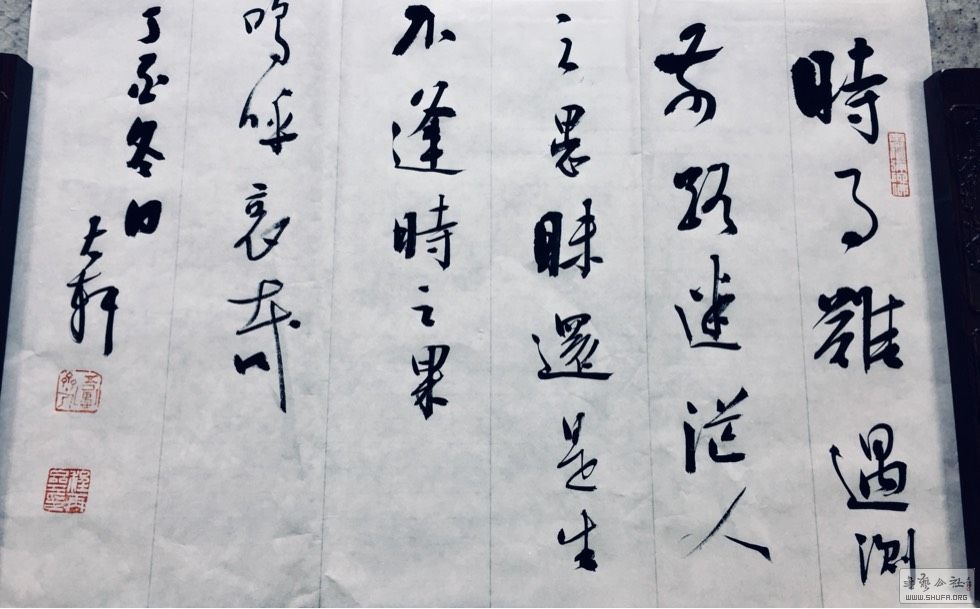 時事難遇測
前路迷茫人
之愚昧還是生
不逢時之果
嗚呼哀哉
丁酉冬日
大軒
書藝公社
WWW.SHUFA.ORG